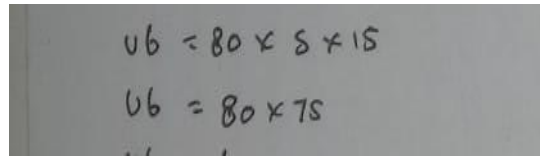 Ub = 80 x 5 x 15
Ub = 80 x 75